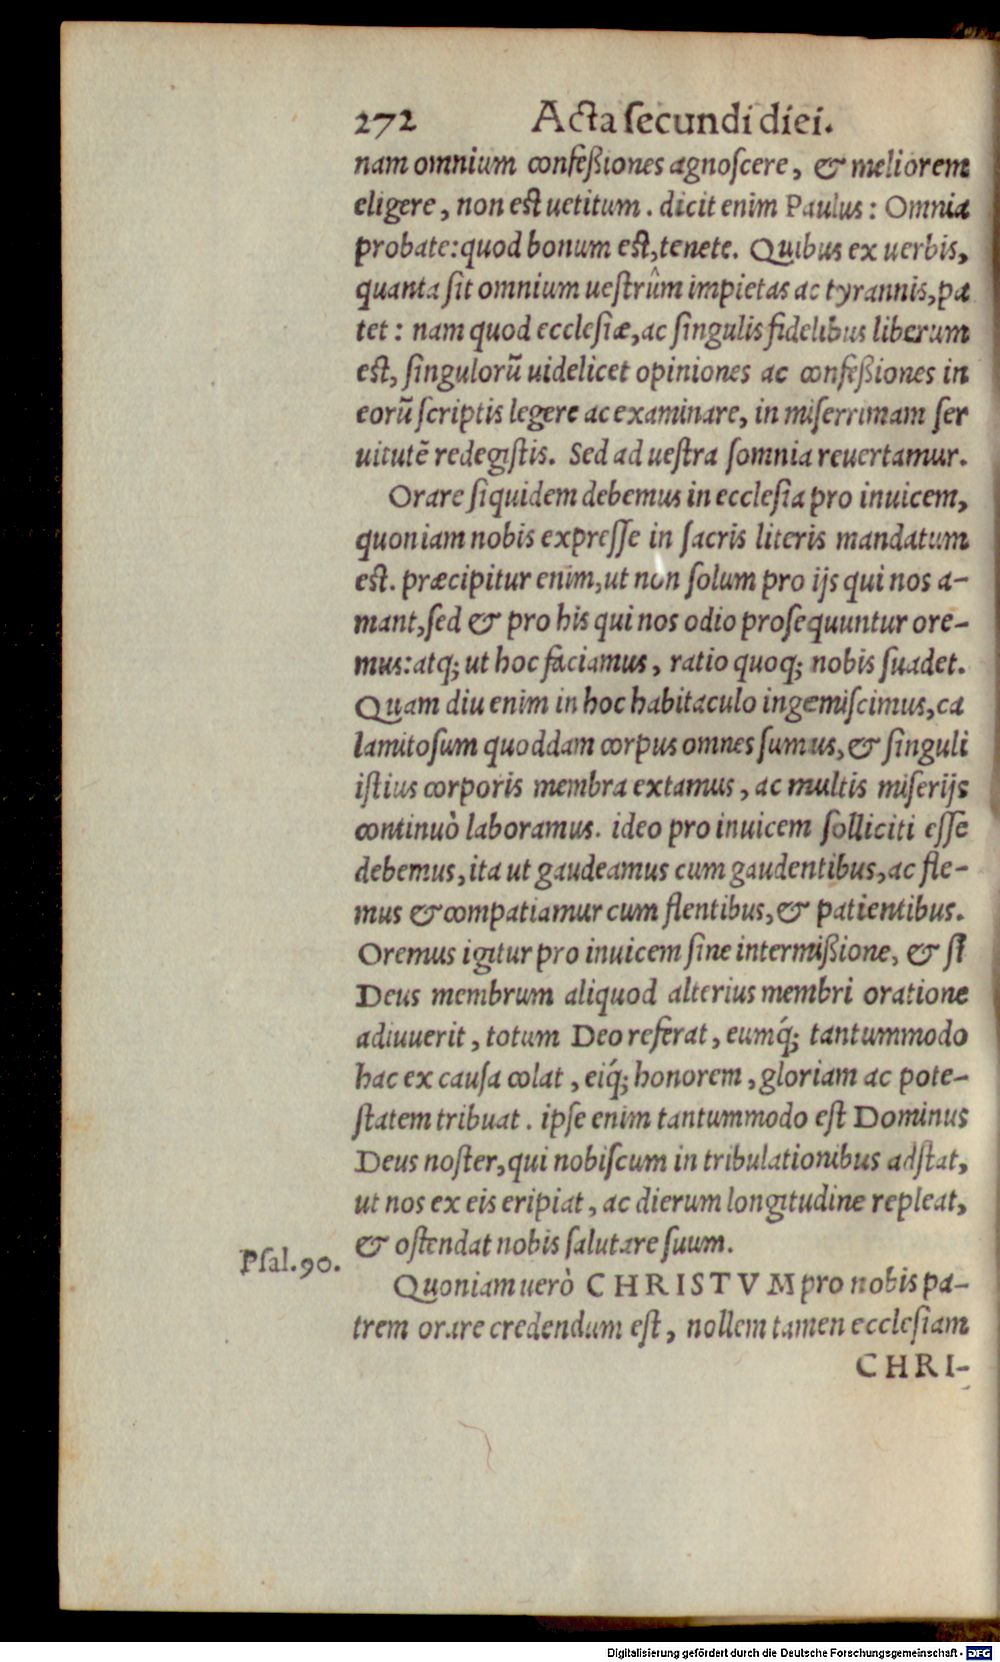 272 Acta ſecundi diei.
nam omnium confeßiones agnoſcere, & meliorem
eligere, non est uetitum. dicit enim Paulus: Omnia
probate: quod bonum est, tenete. Quibus ex uerbis,
quanta ſit omnium ueſtrûm impietas ac tyrannis, pa
tet: nam quod eccleſiæ, ac ſingulis fidelibus liberum
est, ſingulorũ uidelicet opiniones ac confeßiones in
eorũ ſcriptis legere ac examinare, in miſerrimam ſer
uitutẽ redegiſtis. Sed ad ueſtra ſomnia reuertamur.
Orare ſiquidem debemus in eccleſia pro inuicem,
quoniam nobis expreſſe in ſacris literis mandatum
est. præcipitur enim, ut non ſolum pro ijs qui nos a-
mant, ſed & pro his qui nos odio proſequuntur ore-
mus: atq; ut hoc faciamus, ratio quoq; nobis ſuadet.
Quam diu enim in hoc habitaculo ingemiſcimus, ca
lamitoſum quoddam corpus omnes ſumus, & ſinguli
iſtius corporis membra extamus, ac multis miſerijs
continuò laboramus. ideo pro inuicem ſolliciti eſſe
debemus, ita ut gaudeamus cum gaudentibus, ac fle-
mus & compatiamur cum flentibus, & patientibus.
Oremus igitur pro inuicem ſine intermißione, & ſi
Deus membrum aliquod alterius membri oratione
adiuuerit, totum Deo referat, eumq́; tantummodo
hac ex cauſa colat, eiq́; honorem, gloriam ac pote-
ſtatem tribuat. ipſe enim tantummodo eſt Dominus
Deus noſter, qui nobiſcum in tribulationibus adſtat,
ut nos ex eis eripiat, ac dierum longitudine repleat,
& oſtendat nobis ſalutare ſuum.
Pſal. 90.
Quoniam uerò CHRISTVM pro nobis pa-
trem orare credendum eſt, nollem tamen eccleſiam
CHRI-
Digitalisierung gefördert durch die Deutsche Forschungsgemeinschaft - DFG